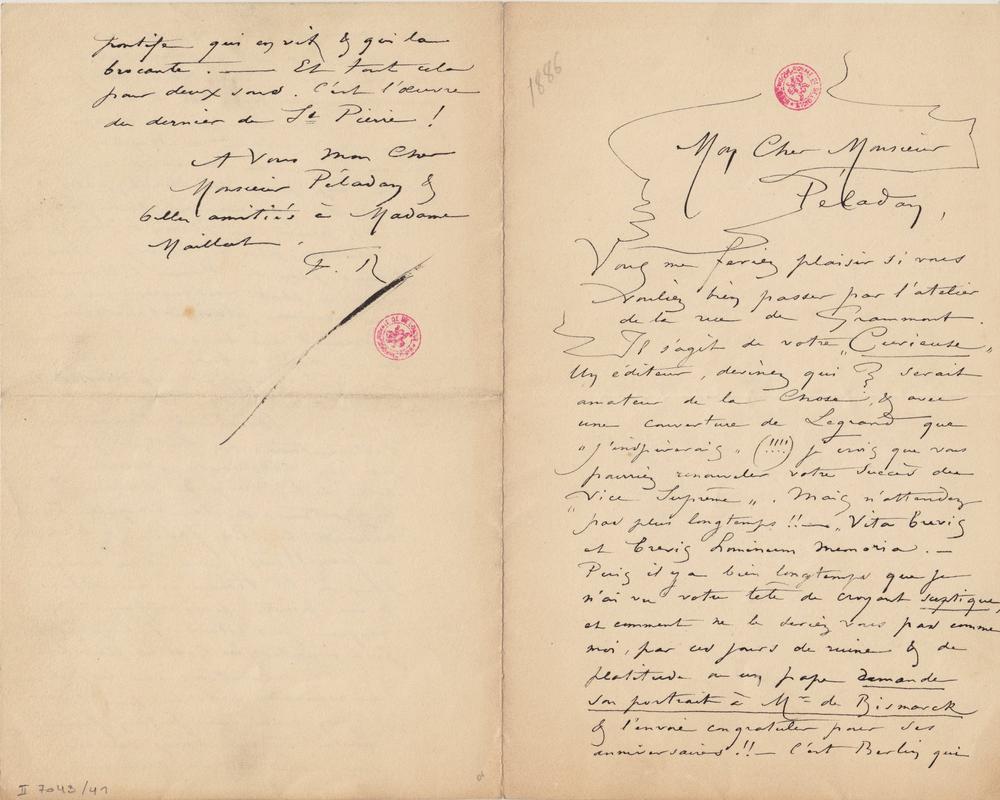 1886
Mon Cher Monsieur
Péladan,
Vous me feriez plaisir si vous
vouliez bien passer par l'atelier
de la rue de Grammont.
Il s'agit de votre „Curieuse„
Un éditeur, devinez qui ? serait
amateur de la chose, & avec
une couverture de Legrand que
„j'inspirerais„ (!!!!) je crois que vous
pourriez renouveler votre succès du
„Vice Suprême„. Mais n'attendez
pas plus longtemps !!— „Vita brevis
et brevis hominum memoria. —
Puis il y a bien longtemps que je
n'ai vu votre tête de croyant sceptique,
et comment ne le seriez vous pas comme
moi, par ces jours de ruine & de
platitude où un pape demande
son portrait à Mr de Bismarck
& l'envoie congratuler pour ses
anniversaires !!— C'est Berlin qui
pontife qui en vit & qui la
brocante. — Et tout cela
pour deux sous. C'est l'œuvre
du denier de St Pierre !
A Vous mon Cher
Monsieur Péladan &
belles amitiés à Madame
Maillat.
F. R
II 7043/41